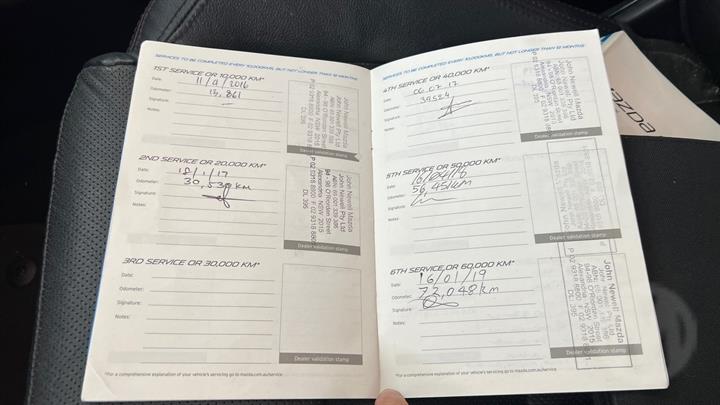 SERVICES TO BE COMPLETED EVERY 10,000KMS, BUT NOT LONGER THAN 12 MONTHS
1ST SERVICE OR 10,000 KM*
Date:
2016
Odometer:
13,861
Signature:
Notes:
John Newell Mazda
John Newell Pty Ltd
94 - 98 O'Riordan Street
Alexandria NSW 2015
Dealer validation stamp
2ND SERVICE OR 20,000 KM*
Date: 18/1/17
Odometer: 30,539 km
Signature:
Notes:
John Newell Mazda
John Newell Pty Ltd
94 - 98 O'Riordan Street
Alexandria NSW 2015
DL 395
Dealer validation stamp
3RD SERVICE OR 30,000 KM*
Date:
Odometer:
Signature:
Notes:
Dealer validation stamp
*For a comprehensive explanation of your vehicle's servicing go to mazda.com.au/service
SERVICES TO BE COMPLETED EVERY 10,000KMS, BUT NOT LONGER THAN 12 MONTHS
4TH SERVICE OR 40,000 KM*
Date: 06.07.17
Odometer:
Signature:
Notes:
John Newell Mazda
John Newell Pty Ltd
Dealer validation stamp
5TH SERVICE OR 50,000 KM*
Date:
Odometer: 56,451km
Signature:
Notes:
Dealer validation stamp
6TH SERVICE OR 60,000 KM*
Date: 16/01/19
Odometer: 72,048km
Signature:
Notes:
John Newell Mazda
John Newell Pty Ltd
94-98 O'Riordan Street
Alexandria NSW 2015
DL 395
Dealer validation stamp
*For a comprehensive explanation of your vehicle's servicing go to mazda.com.au/service